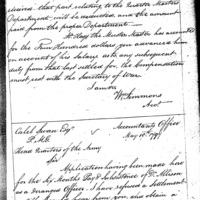 desire, that part relating to the Quarter Masters
Department will be rescinded, and the amount
paid from the proper Department.
Mr Hoge the Muster Master has accounted
for the Four Hundred dollars you advanced him
on account of his Salary as to any subsequent
duty from that last settled for, the Compensation
must rest with the Secretary of War.
I am &c
Wm Simmons
Acct
Caleb Swan Esqr
P.M.G.
Head Quarters of the Army
Sir
Accountants Office
May 10th 179
Application having been made here
for the Six Months Pay & Subsistence of Dr Allison
as a deranged Officer, I have refused a Settlement